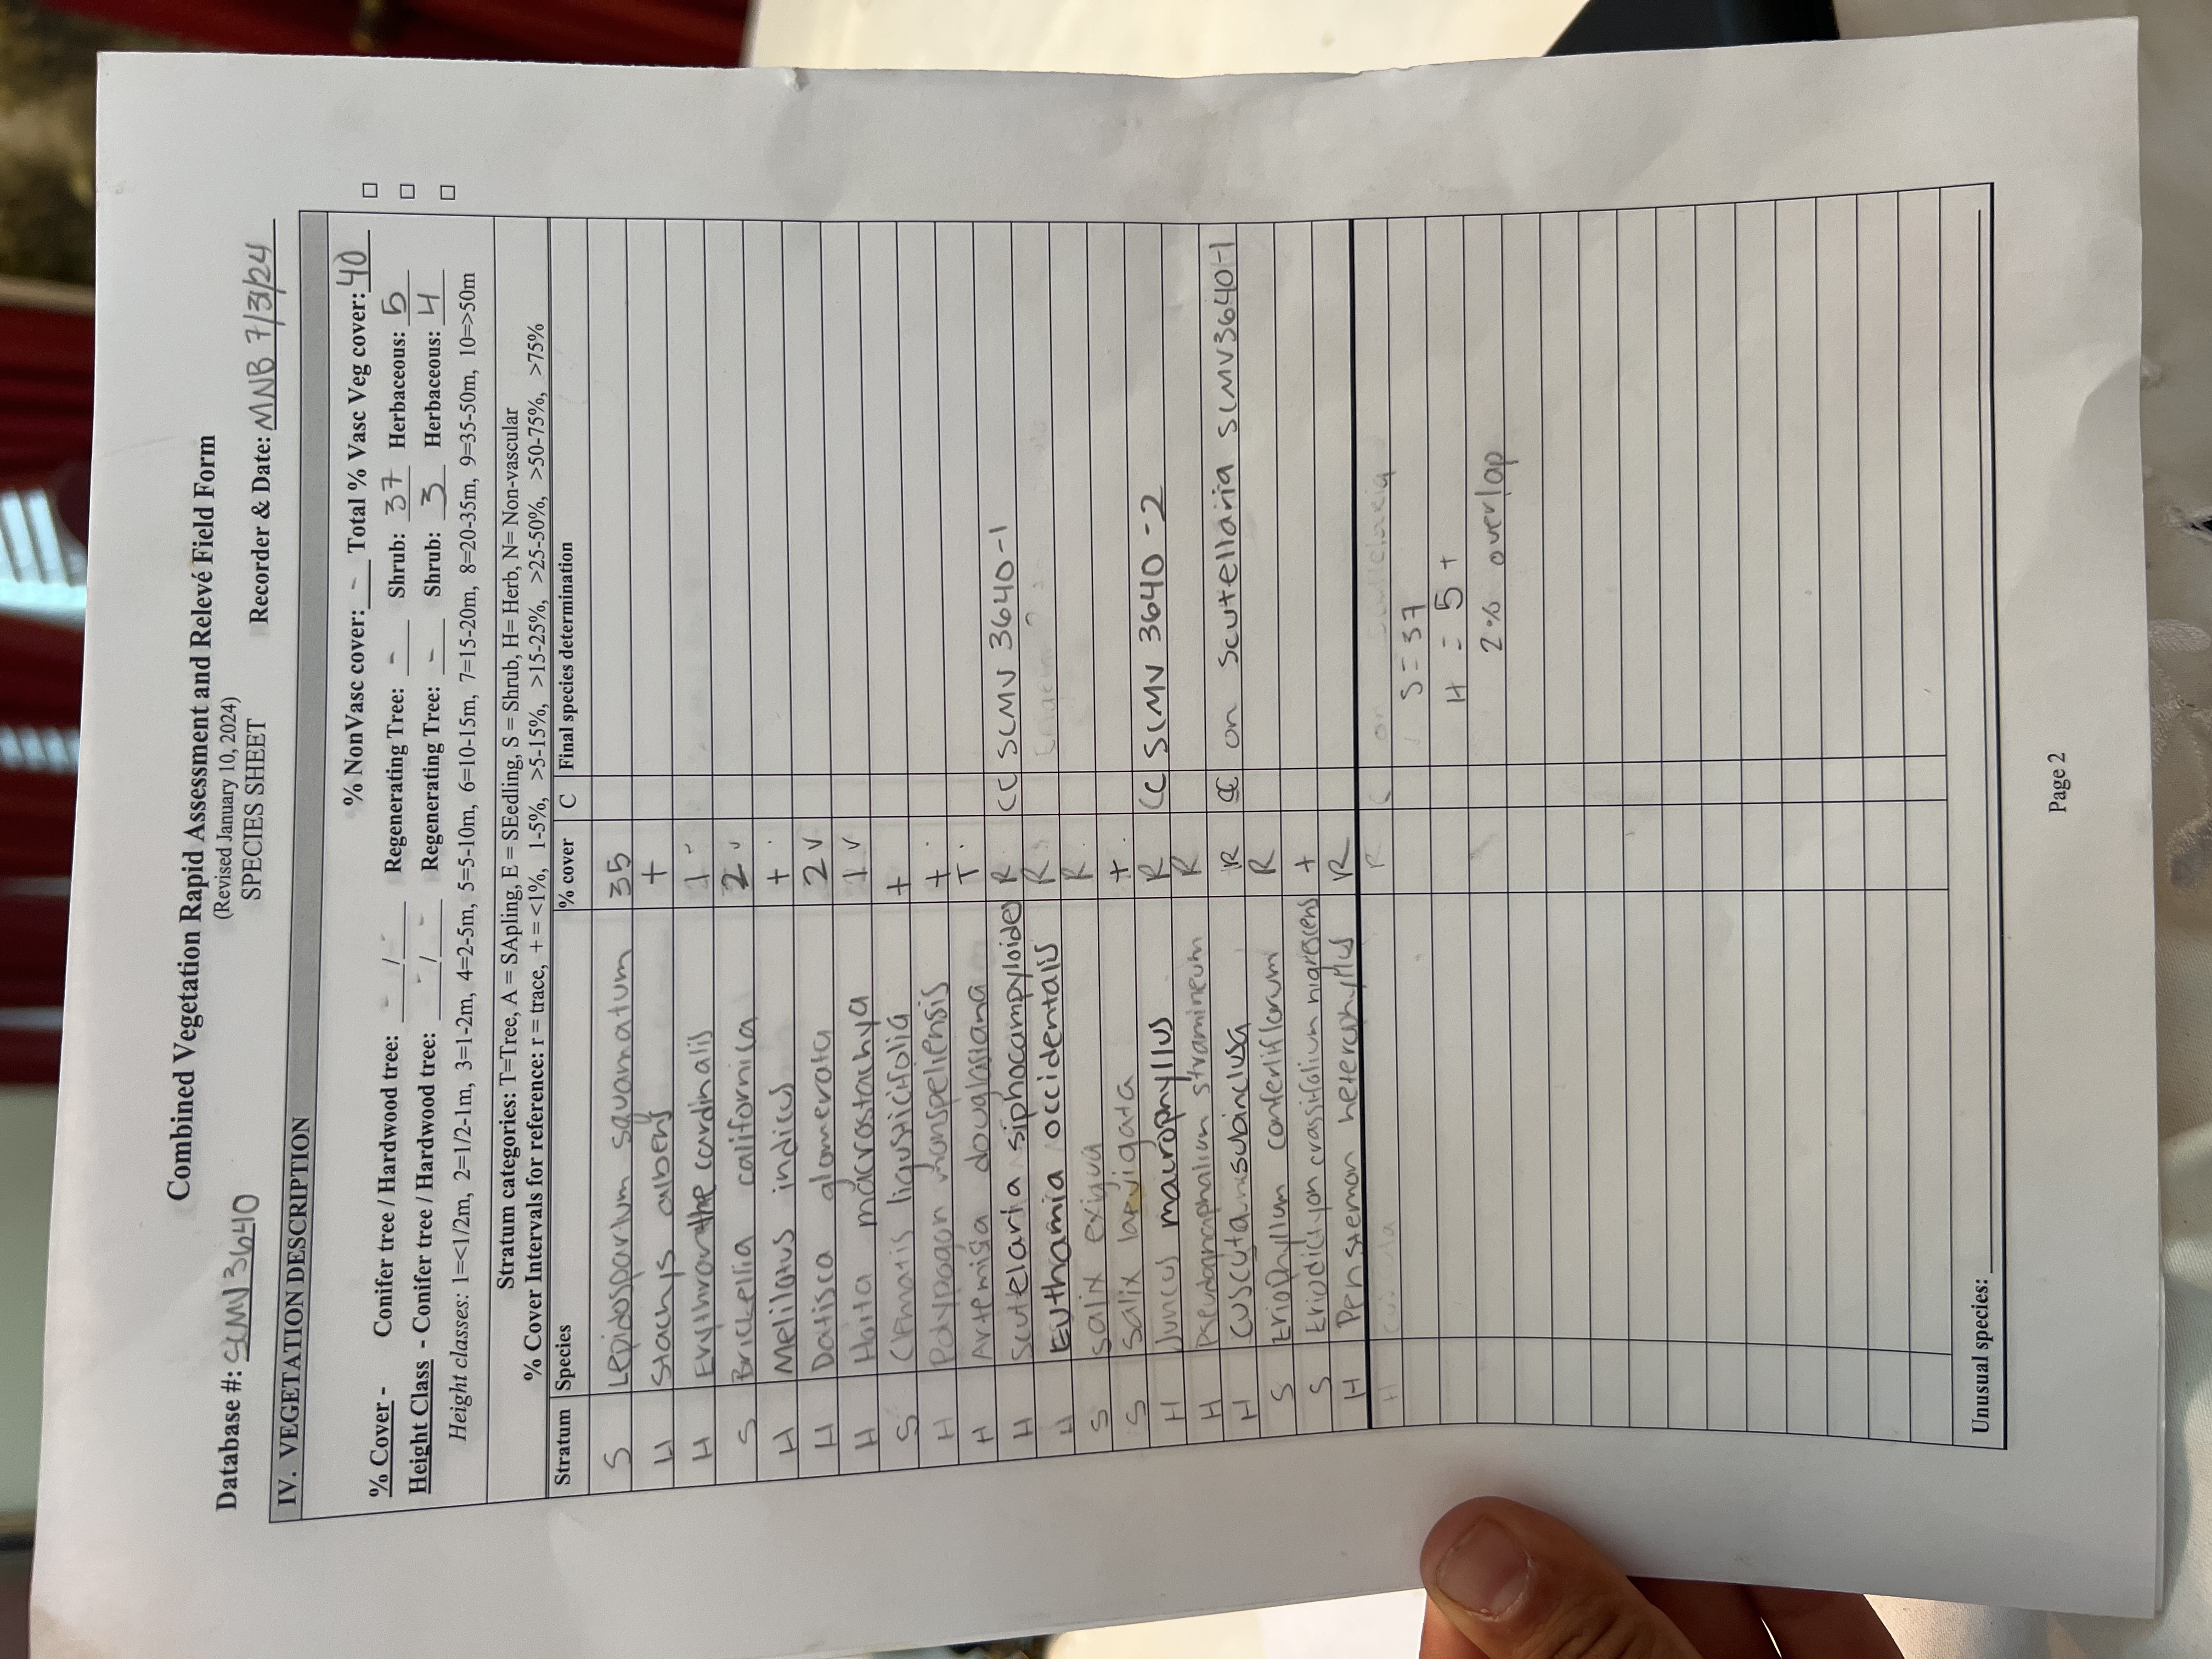 Combined Vegetation Rapid Assessment and Relevé Field Form
(Revised January 10, 2024)
SPECIES SHEET
Database #: SCMV3640 Recorder & Date: MNB 7/31/24
IV. VEGETATION DESCRIPTION
% NonVasc cover: - Total % Vasc Veg cover: 40
% Cover - Conifer tree / Hardwood tree: - / - Regenerating Tree: - Shrub: 37 Herbaceous: 5 □
Height Class - Conifer tree / Hardwood tree: - / - Regenerating Tree: - Shrub: 3 Herbaceous: 4 □
Height classes: 1=<1/2m, 2=1/2-1m, 3=1-2m, 4=2-5m, 5=5-10m, 6=10-15m, 7=15-20m, 8=20-35m, 9=35-50m, 10=>50m
Stratum categories: T=Tree, A = SApling, E = SEedling, S = Shrub, H= Herb, N= Non-vascular
% Cover Intervals for reference: r = trace, + = <1%, 1-5%, >5-15%, >15-25%, >25-50%, >50-75%, >75%
Stratum Species % cover C Final species determination
S Lepidospartum squamatum 35
H Stachys albens +
H Erythranthe cardinalis 1
S Brickellia californica 2
H Melilotus indicus +
H Datisca glomerata 2 ✓
H Hoita macrostachya 1 ✓
S Clematis ligusticifolia +
H Polypogon monspeliensis +
H Artemisia douglasiana T
H Scutelaria siphocampyloides R CC SCMV 3640-1
H Euthamia occidentalis R
S Salix exigua R
S Salix laevigata +
H Juncus macrophyllus R CC SCMV 3640-2
H Pseudognaphalium stramineum R
H Cuscuta subinclusa R CC on scutellaria SCMV3640-1
S Eriophyllum confertiflorum R
S Eriodictyon crassifolium nigrescens +
H Penstemon heterophyllus R
S = 37
H = 5 +
2% overlap
Unusual species:
Page 2